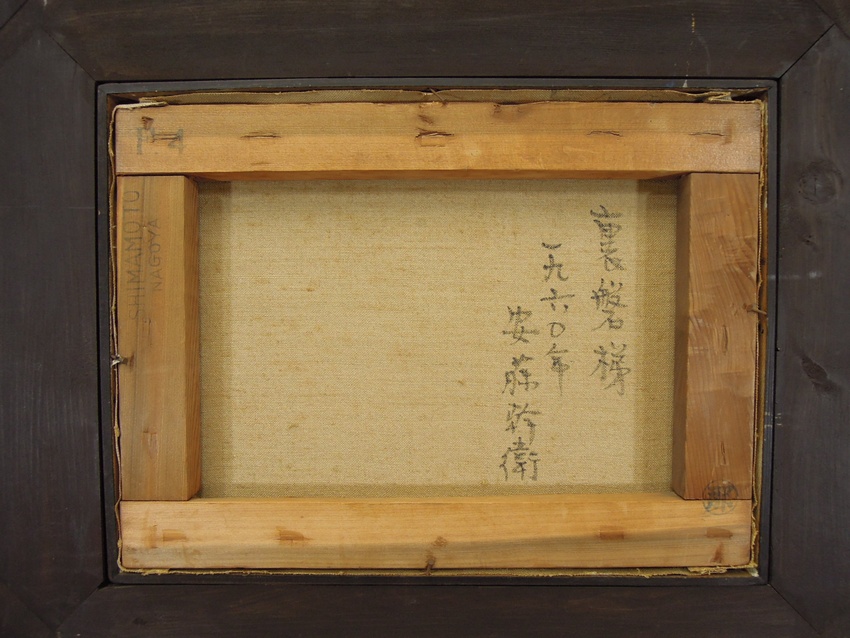 裏磐梯
一九六〇年
安藤幹衛
SHIMAMOTO
NAGOYA